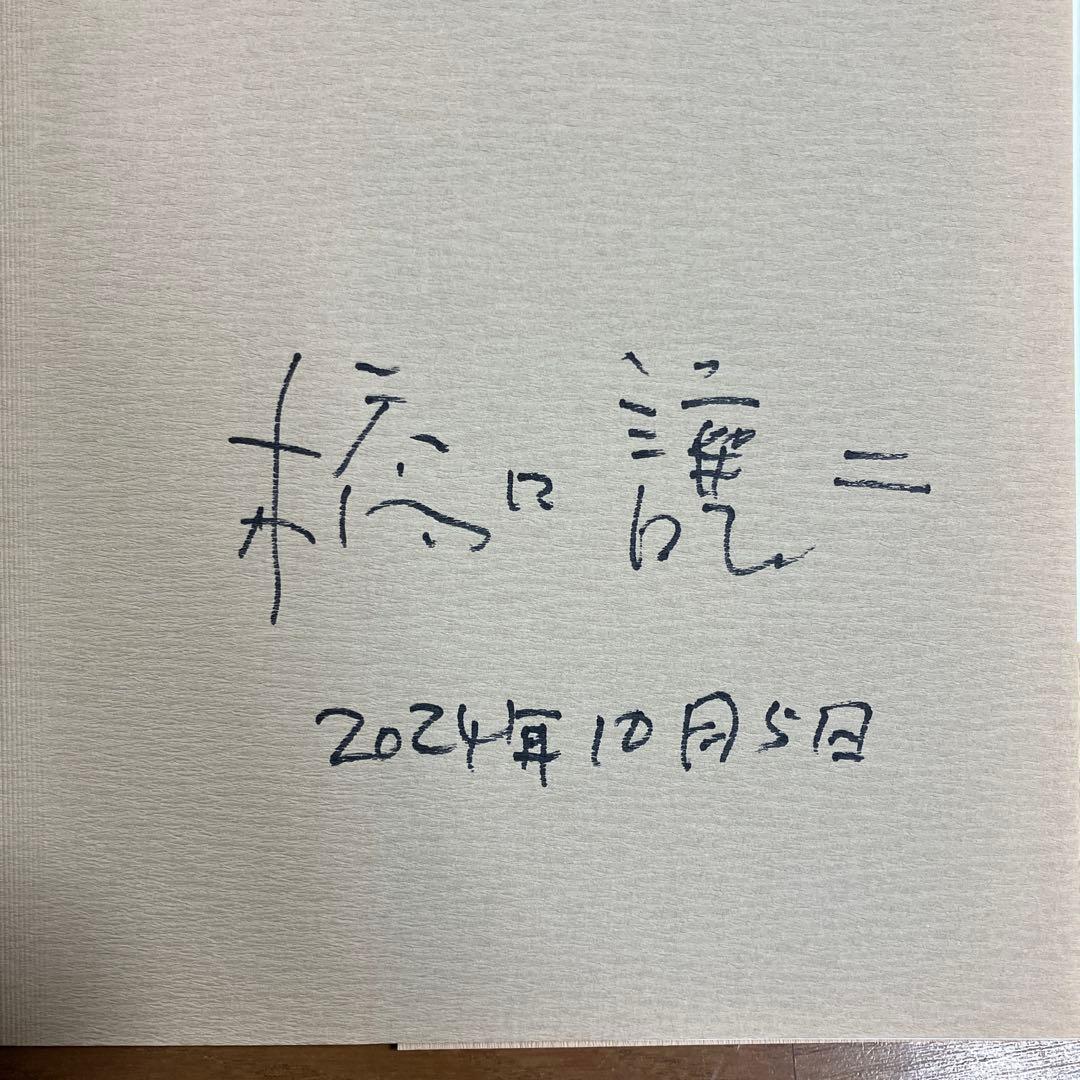 橋口譲二
2024年10月5日